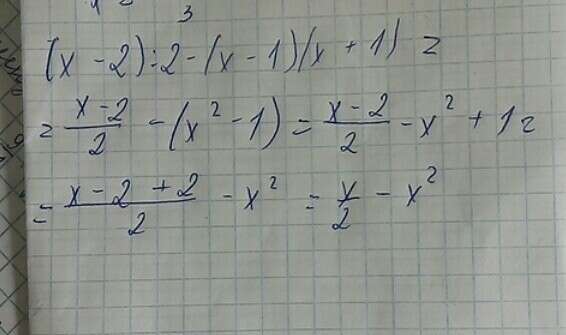 3
(x - 2) : 2 - (x - 1)(x + 1) =
= \frac{x - 2}{2} - (x² - 1) = \frac{x - 2}{2} - x² + 1 =
= \frac{x - 2 + 2}{2} - x² = \frac{x}{2} - x²